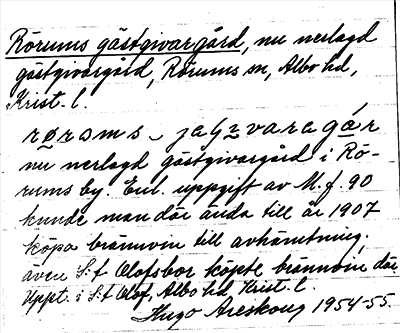 Rörums gästgivargård, nu nerlagd
gästgivargård, Rörums sn, Albo hd,
Krist. l.
nu nerlagd gästgivargård i Rö-
rums by. Enl. uppgift av M. f. 90
kunde man där ända till år 1907
köpa brännvin till avhämtning,
även S:t Olofsbor köpte brännvin där.
Uppt. i S:t Olof, Albo hd Krist. l.
Hugo Areskoug 1954-55.